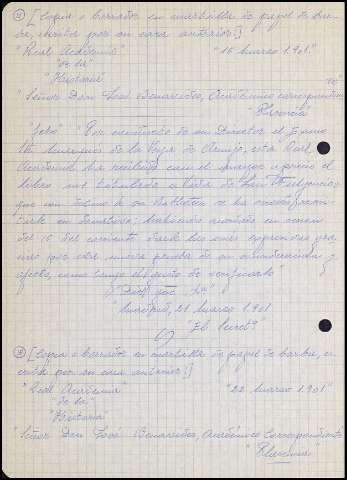 [Copia o borrador en cuartilla de papel de bar-
ba, escrita por su cara anterior:]
"Real Academia" "16 Marzo 1.901"
"de la"
"Historia"
"Señor Don José Benavides, Académico correspondiente
"Plasencia"
"Por conducto de su Director el Excmo
de la Vega de Armijo, esta Real
Academia ha recibido con el mayor aprecio el
libro
que con destino a su Biblioteca se ha
donativo; habiendo acordado en sesion
del 15 del corriente darle las más expresivas gra-
cias por esta nueva prueba de su
afecto, como tengo el gusto de verificarlo"
"Dios gue
"Madrid, 21 Marzo 1.901
"El Secreto"
[Copia o borrador en cuartilla de papel de barba, es-
crita por su cara anterior:]
"Real Academia" "22 Marzo 1.901"
"de la"
"Historia"
"Señor Don José Benavides, Académico Correspondiente
"Plasencia"